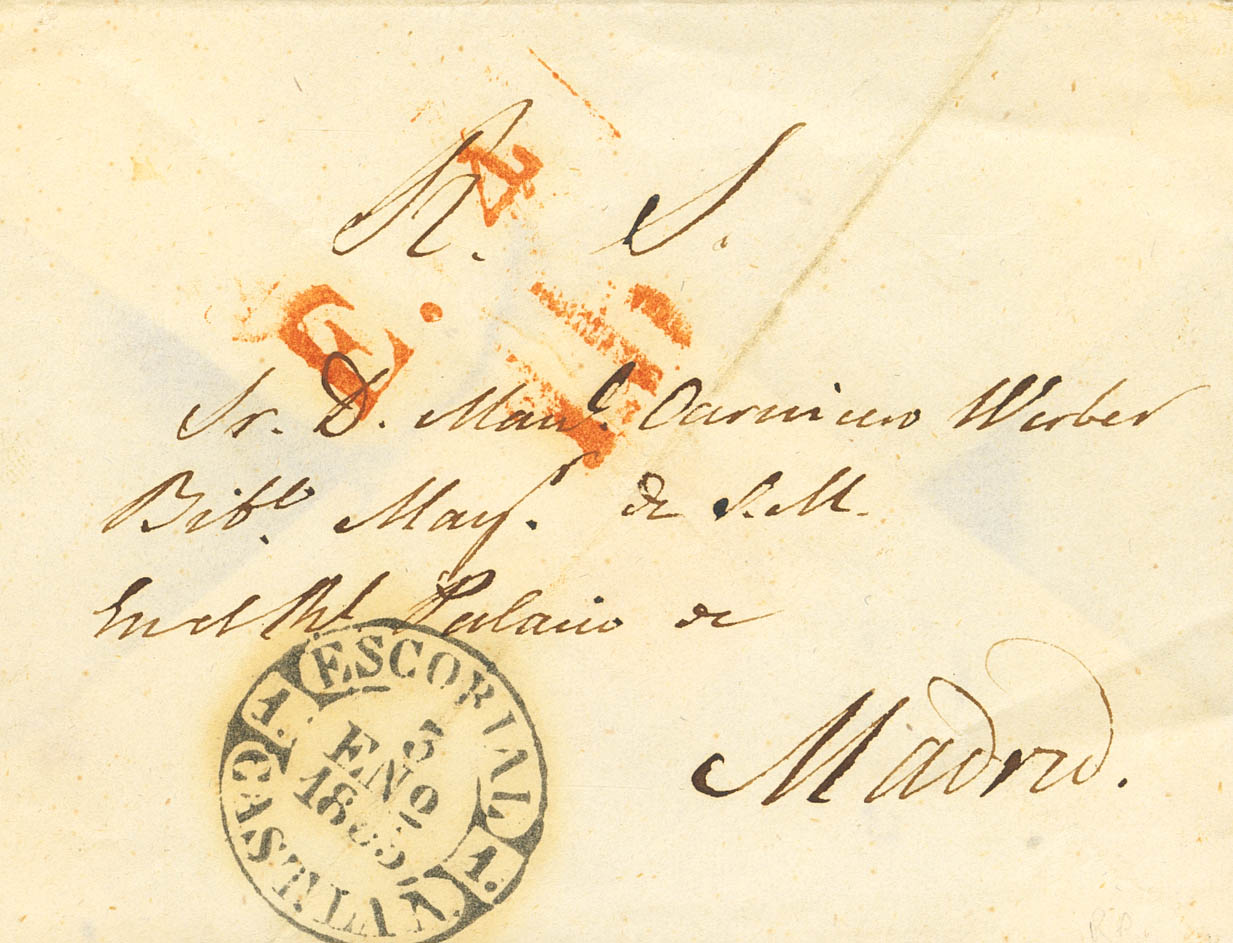 R. S.
4
E.
Sr. D. Man.l Carnicero Weber
Bib.o May.r de S.M.
En el Rl. Palacio de
Madrid.
ESCORIAL
1.
5
ENO
1855
1.
CASTILLA V.